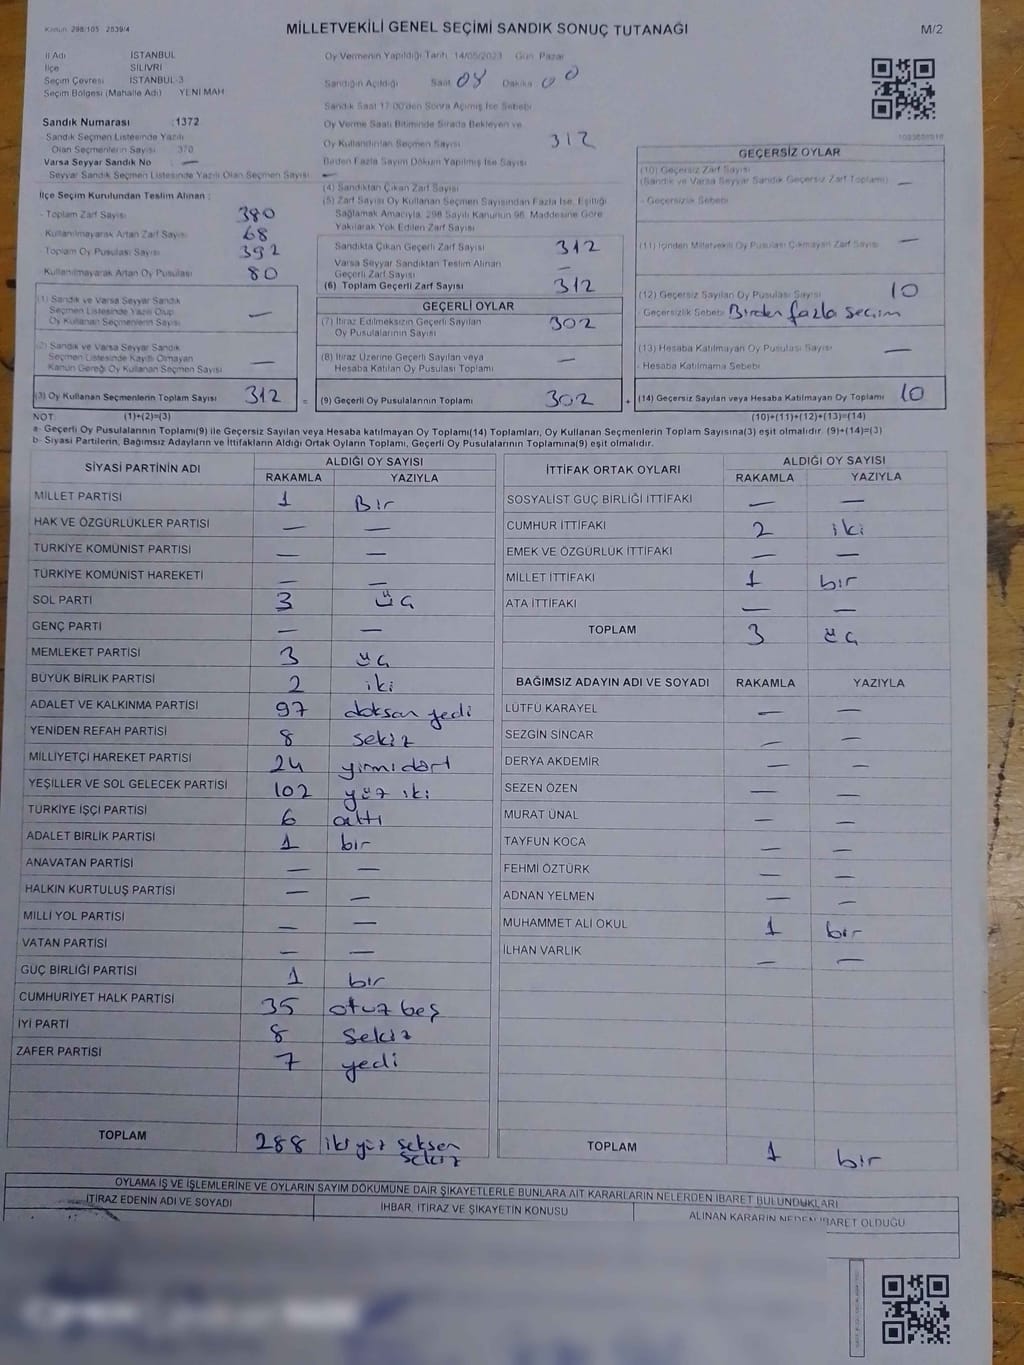 Kanun 298/105 2839/4
MİLLETVEKİLİ GENEL SEÇİMİ SANDIK SONUÇ TUTANAĞI
M/2
İl Adı İSTANBUL
İlçe SİLİVRİ
Seçim Çevresi İSTANBUL-3
Seçim Bölgesi (Mahalle Adı) YENİ MAH
Sandık Numarası :1372
Sandık Seçmen Listesinde Yazılı
Olan Seçmenlerin Sayısı 370
Varsa Seyyar Sandık No —
Seyyar Sandık Seçmen Listesinde Yazılı Olan Seçmen Sayısı: —
İlçe Seçim Kurulundan Teslim Alınan :
- Toplam Zarf Sayısı 380
- Kullanılmayarak Artan Zarf Sayısı 68
- Toplam Oy Pusulası Sayısı 392
- Kullanılmayarak Artan Oy Pusulası 80
(1) Sandık ve Varsa Seyyar Sandık
Seçmen Listesinde Yazılı Olup
Oy Kullanan Seçmenlerin Sayısı —
(2) Sandık ve Varsa Seyyar Sandık
Seçmen Listesinde Kayıtlı Olmayan
Kanun Gereği Oy Kullanan Seçmen Sayısı —
(3) Oy Kullanan Seçmenlerin Toplam Sayısı 312 =
Oy Vermenin Yapıldığı Tarih 14/05/2023 Gün Pazar
Sandığın Açıldığı Saat 08 Dakika 00
Sandık Saat 17:00'den Sonra Açılmış İse Sebebi
Oy Verme Saati Bitiminde Sırada Bekleyen ve
Oy Kullandırılan Seçmen Sayısı 312
Birden Fazla Sayım Döküm Yapılmış İse Sayısı
(4) Sandıktan Çıkan Zarf Sayısı
(5) Zarf Sayısı Oy Kullanan Seçmen Sayısından Fazla İse, Eşitliği
Sağlamak Amacıyla, 298 Sayılı Kanunun 98. Maddesine Göre
Yakılarak Yok Edilen Zarf Sayısı
Sandıkta Çıkan Geçerli Zarf Sayısı 312
Varsa Seyyar Sandıktan Teslim Alınan
Geçerli Zarf Sayısı —
(6) Toplam Geçerli Zarf Sayısı 312
GEÇERLİ OYLAR
(7) İtiraz Edilmeksizin Geçerli Sayılan
Oy Pusulasının Sayısı 302
(8) İtiraz Üzerine Geçerli Sayılan veya
Hesaba Katılan Oy Pusulası Toplamı —
(9) Geçerli Oy Pusulalarının Toplamı 302 +
GEÇERSİZ OYLAR
(10) Geçersiz Zarf Sayısı
(Sandık ve Varsa Seyyar Sandık Geçersiz Zarf Toplamı) —
- Geçersizlik Sebebi
(11) İçinden Milletvekili Oy Pusulası Çıkmayan Zarf Sayısı —
(12) Geçersiz Sayılan Oy Pusulası Sayısı 10
- Geçersizlik Sebebi Birden fazla seçim
(13) Hesaba Katılmayan Oy Pusulası Sayısı —
- Hesaba Katılmama Sebebi
(14) Geçersiz Sayılan veya Hesaba Katılmayan Oy Toplamı 10
NOT: (1)+(2)=(3) (10)+(11)+(12)+(13)=(14)
a- Geçerli Oy Pusulalarının Toplamı(9) ile Geçersiz Sayılan veya Hesaba katılmayan Oy Toplamı(14) Toplamları, Oy Kullanan Seçmenlerin Toplam Sayısına(3) eşit olmalıdır. (9)+(14)=(3)
b- Siyasi Partilerin, Bağımsız Adayların ve İttifakların Aldığı Ortak Oyların Toplamı, Geçerli Oy Pusulalarının Toplamına(9) eşit olmalıdır.
SİYASİ PARTİNİN ADI ALDIĞI OY SAYISI
RAKAMLA YAZIYLA
MİLLET PARTİSİ 1 Bir
HAK VE ÖZGÜRLÜKLER PARTİSİ — —
TÜRKİYE KOMÜNİST PARTİSİ — —
TÜRKİYE KOMÜNİST HAREKETİ — —
SOL PARTİ 3 üç
GENÇ PARTİ — —
MEMLEKET PARTİSİ 3 üç
BÜYÜK BİRLİK PARTİSİ 2 iki
ADALET VE KALKINMA PARTİSİ 97 doksan yedi
YENİDEN REFAH PARTİSİ 8 sekiz
MİLLİYETÇİ HAREKET PARTİSİ 24 yirmi dört
YEŞİLLER VE SOL GELECEK PARTİSİ 102 yüz iki
TÜRKİYE İŞÇİ PARTİSİ 6 altı
ADALET BİRLİK PARTİSİ 1 bir
ANAVATAN PARTİSİ — —
HALKIN KURTULUŞ PARTİSİ — —
MİLLİ YOL PARTİSİ — —
VATAN PARTİSİ — —
GÜÇ BİRLİĞİ PARTİSİ 1 bir
CUMHURİYET HALK PARTİSİ 35 otuz beş
İYİ PARTİ 8 sekiz
ZAFER PARTİSİ 7 yedi
TOPLAM 288 iki yüz seksen
sekiz
İTTİFAK ORTAK OYLARI ALDIĞI OY SAYISI
RAKAMLA YAZIYLA
SOSYALİST GÜÇ BİRLİĞİ İTTİFAKI — —
CUMHUR İTTİFAKI 2 iki
EMEK VE ÖZGÜRLÜK İTTİFAKI — —
MİLLET İTTİFAKI 1 bir
ATA İTTİFAKI — —
TOPLAM 3 üç
BAĞIMSIZ ADAYIN ADI VE SOYADI RAKAMLA YAZIYLA
LÜTFÜ KARAYEL — —
SEZGİN SİNCAR — —
DERYA AKDEMİR — —
SEZEN ÖZEN — —
MURAT ÜNAL — —
TAYFUN KOCA — —
FEHMİ ÖZTÜRK — —
ADNAN YELMEN — —
MUHAMMET ALİ OKUL 1 bir
İLHAN VARLIK — —
TOPLAM 1 bir
OYLAMA İŞ VE İŞLEMLERİNE VE OYLARIN SAYIM DÖKÜMÜNE DAİR ŞİKAYETLERLE BUNLARA AİT KARARLARIN NELERDEN İBARET BULUNDUKLARI
İTİRAZ EDENİN ADI VE SOYADI İHBAR, İTİRAZ VE ŞİKAYETİN KONUSU ALINAN KARARIN NEDEN İBARET OLDUĞU